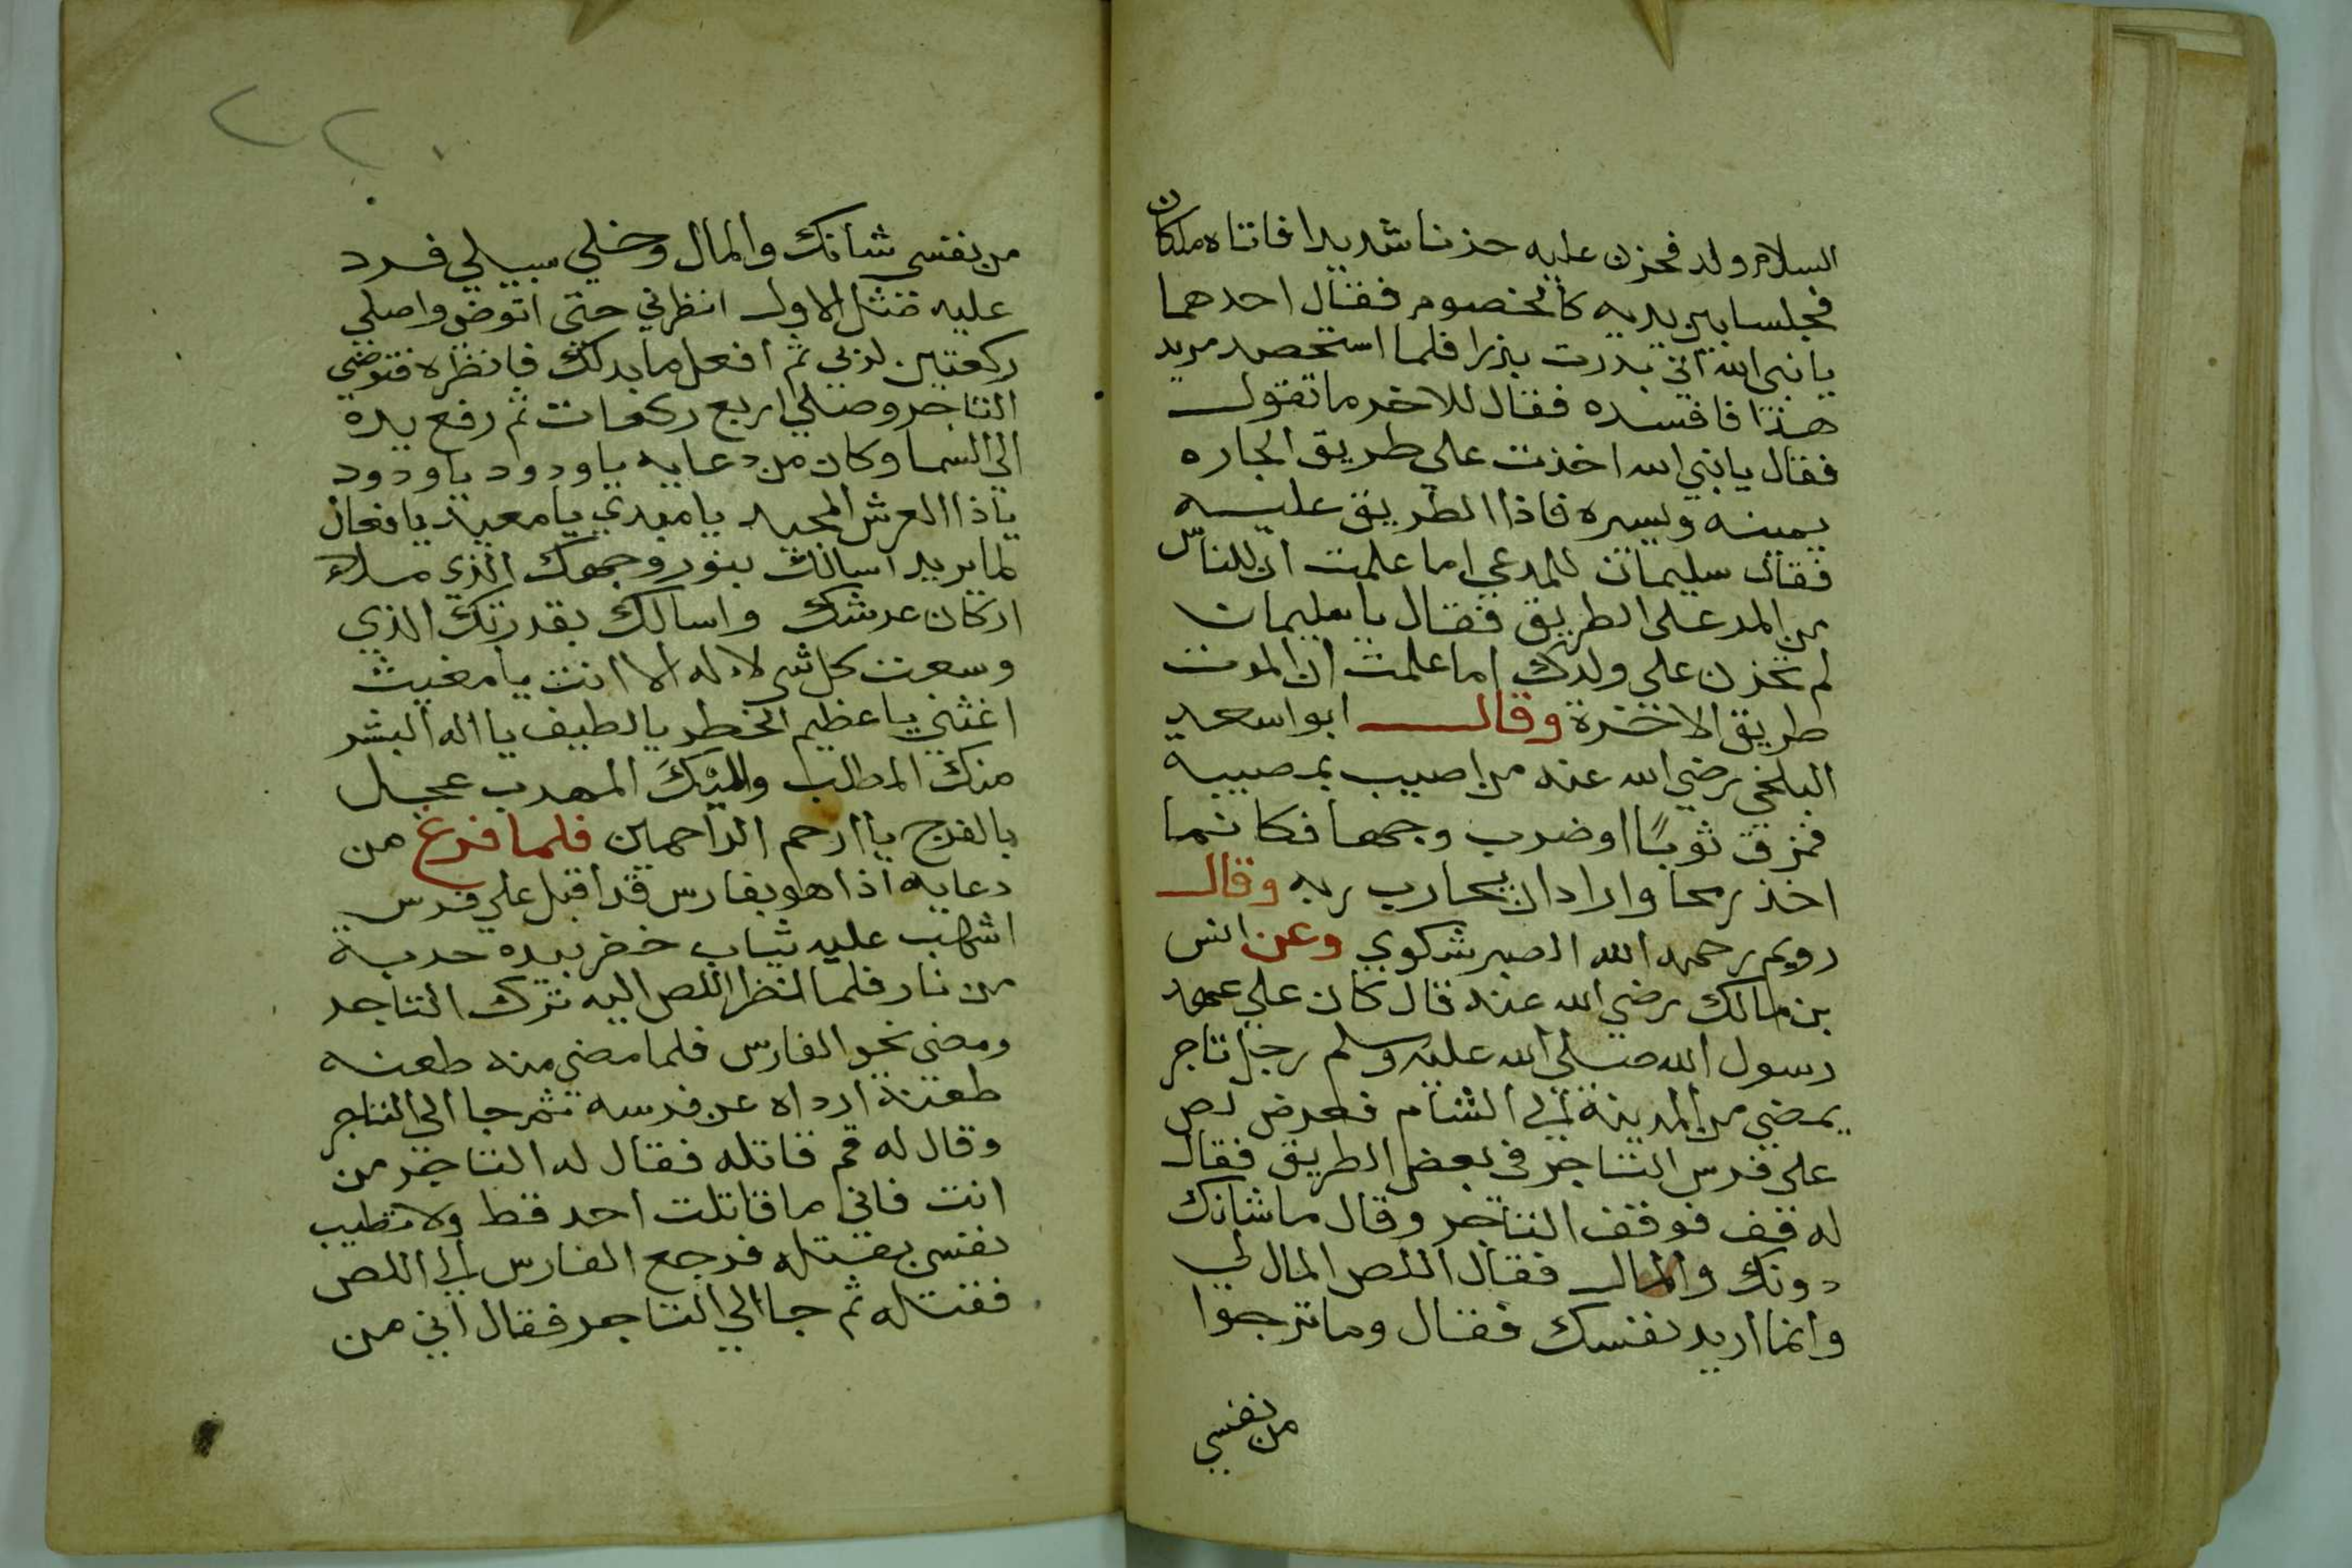 السلام ولد فحزن عليه حزنا شديدا فاتاه ملكان
فجلسا بين يديه كالخصوم فقال احدهما
يا نبي الله اني بدرت بذرا فلما استحصد مر يد
هذا فافسده فقال للاخر ما تقول
فقال يا نبي الله اخذت علي طريق الجاره
يمينه ويسره فاذا الطريق عليه
فقال سليمان للمدعي اما علمت ان للناس
من المر على الطريق فقال يا سليمان
لم تحزن على ولدك اما علمت ان الموت
طريق الاخرة وقال ابو اسعد
البلخي رضي الله عنه من اصيب بمصيبة
فمزق ثوبًا او ضرب وجها فكانما
اخذ رمحا واراد ان يحارب ربه وقال
رويم رحمه الله الصبر شكوي وعن انس
بن مالك رضي الله عنه قال كان علي عهد
رسول الله صلى الله عليه وسلم رجل تاجر
يمضي من المدينة الي الشام فعرض لص
على فرس التاجر في بعض الطريق فقال
له قف فوقف التاجر وقال ما شانك
دونك والمال فقال اللص المال لي
وانما اريد نفسك فقال وما ترجوا
من نفسي
٢٢٠
من نفسي شانك والمال وخلي سبيلي فرد
عليه مثل الاول انظرني حتى اتوضي واصلي
ركعتين لربي ثم افعل ما بدلك فانظره فتوضي
التاجر وصلي اربع ركعات ثم رفع يده
الي السما وكان من دعايه يا ودود يا ودود
يا ذا العرش المجيد يا مبدي يا معيد يا فعال
لما يريد اسالك بنور وجهك الذي ملاء
اركان عرشك واسالك بقدرتك الذي
وسعت كل شي لا اله الا انت يا مغيث
اغثني يا عظيم الخطر يا لطيف يا اله البشر
منك المطلب واليكَ المهرب عجل
بالفرج يا ارحم الراحمين فلما فرغ من
دعايه اذا هو بفارس قد اقبل علي فرس
اشهب عليه ثياب خضر بيده حربة
من نار فلما نظر اللص اليه ترك التاجر
ومضى نحو الفارس فلما مضى منه طعنه
طعنة ارداه عن فرسه ثم جا الى التاجر
وقال له قم قاتله فقال له التاجر من
انت فاني ما قاتلت احد قط ولا تطيب
نفسي بقتله فرجع الفارس الي اللص
فقتله ثم جا الي التاجر فقال اني من